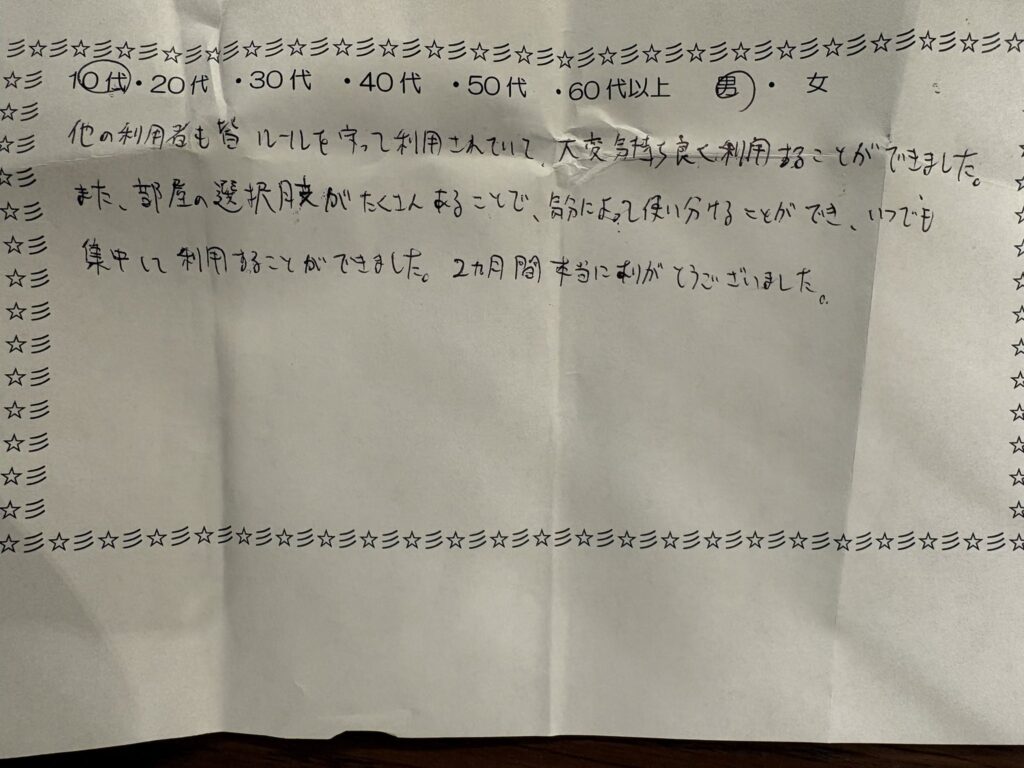 10代・20代・30代・40代・50代・60代以上 男・女
他の利用者も皆ルールを守って利用されていて、大変気持ち良く利用することができました。
また、部屋の選択肢がたくさんあることで、気分によって使い分けることができ、いつでも
集中して利用することができました。2カ月間本当にありがとうございました。